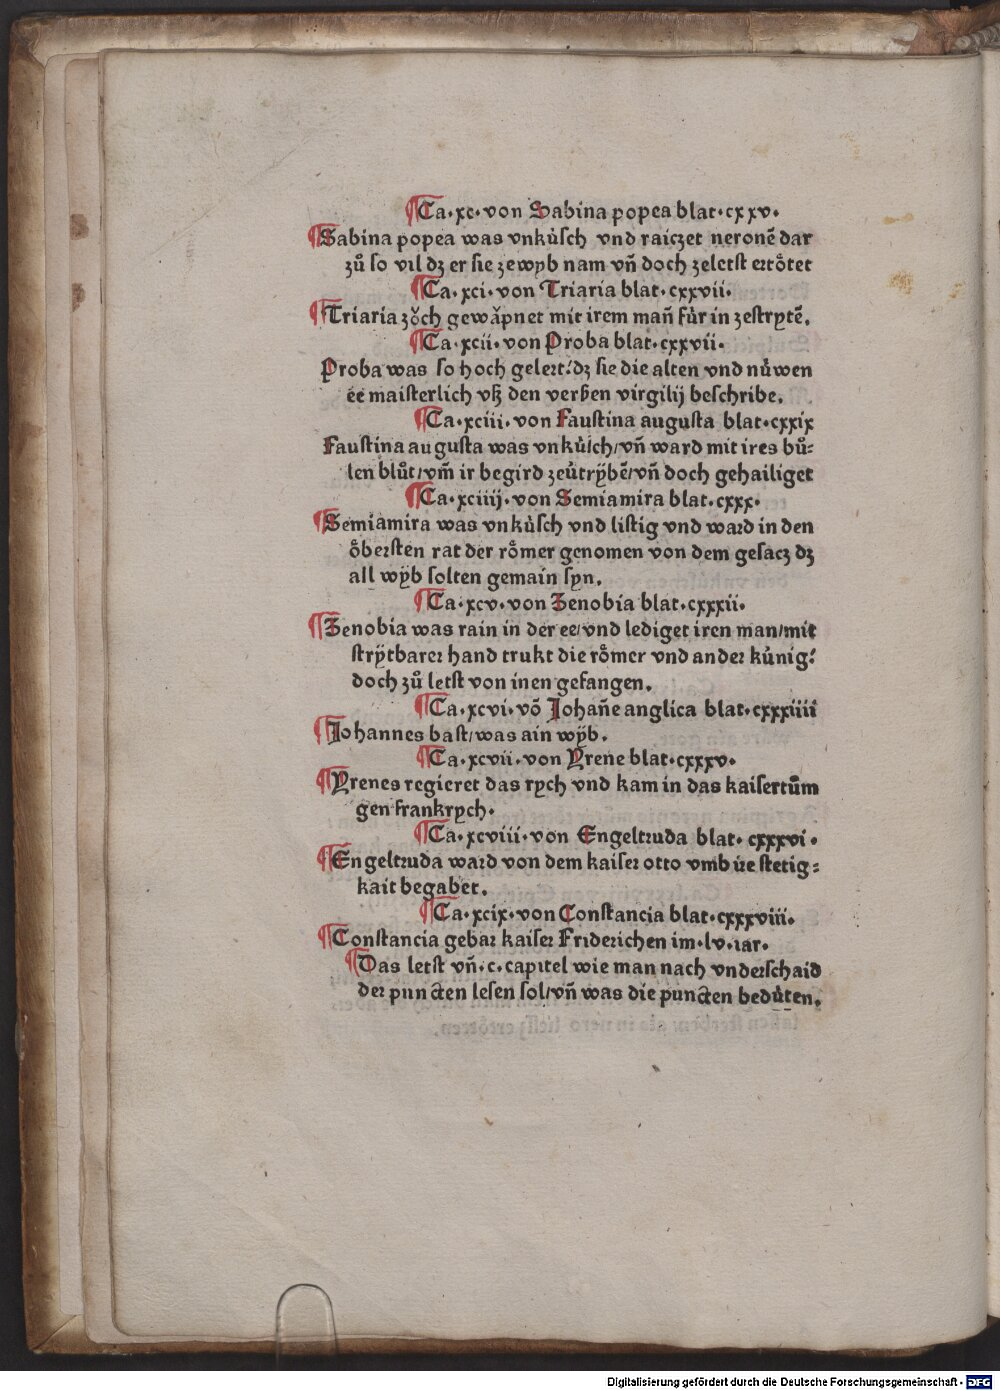 ¶Ca·xc·von Sabina popea blat·cxxv·
¶Sabina popea was vnkůſch vnd raiczet neronē dar
zů ſo vil dz er ſie zewyb nam vn̄ doch zeletſt ertoͤtet
¶Ca·xci·von Triaria blat·cxxvii·
¶Triaria zoͮch gewaͤpnet mit irem man̄ fůr in zeſtrytē.
¶Ca·xcii·von Proba blat·cxxvii·
Proba was ſo hoch gelert:dz ſie die alten vnd nůwen
ee maiſterlich vß den verßen virgilij beſchribe.
¶Ca·xciii·von Fauſtina auguſta blat·cxxix
Fauſtina auguſta was vnkůſch/vn̄ ward mit ires bů⸗
len blůt/vm̄ ir begird zeůtrÿbē/vn̄ doch gehailiget
¶Ca·xciiij·von Semiamira blat·cxxx·
¶Semiamira was vnkůſch vnd liſtig vnd ward in den
oͤberſten rat der roͤmer genomen von dem geſacz dz
all wÿb ſolten gemain ſyn.
¶Ca·xcv·von Zenobia blat·cxxxii·
¶Zenobia was rain in der ee/vnd lediget iren man/mit
ſtrÿtbarer hand trukt die roͤmer vnd ander kůnig:
doch zů letſt von inen gefangen.
¶Ca·xcvi·vō Johan̄e anglica blat·cxxxiiii
¶Johannes baſt/was ain wÿb.
¶Ca·xcvii·von Yrene blat·cxxxv·
¶Yrenes regieret das rych vnd kam in das kaiſertům
gen frankrych·
¶Ca·xcviii·von Engeltruda blat·cxxxvi·
¶Engeltruda ward von dem kaiſer otto vmb ire ſtetig⸗
kait begabet.
¶Ca·xcix·von Conſtancia blat·cxxxviii·
¶Conſtancia gebar kaiſer Friderichen im·lv·iar·
¶Das letſt vn̄·c·capitel wie man nach vnderſchaid
der puncten leſen ſol/vn̄ was die puncten bedůten.
Digitalisierung gefördert durch die Deutsche Forschungsgemeinschaft - DFG